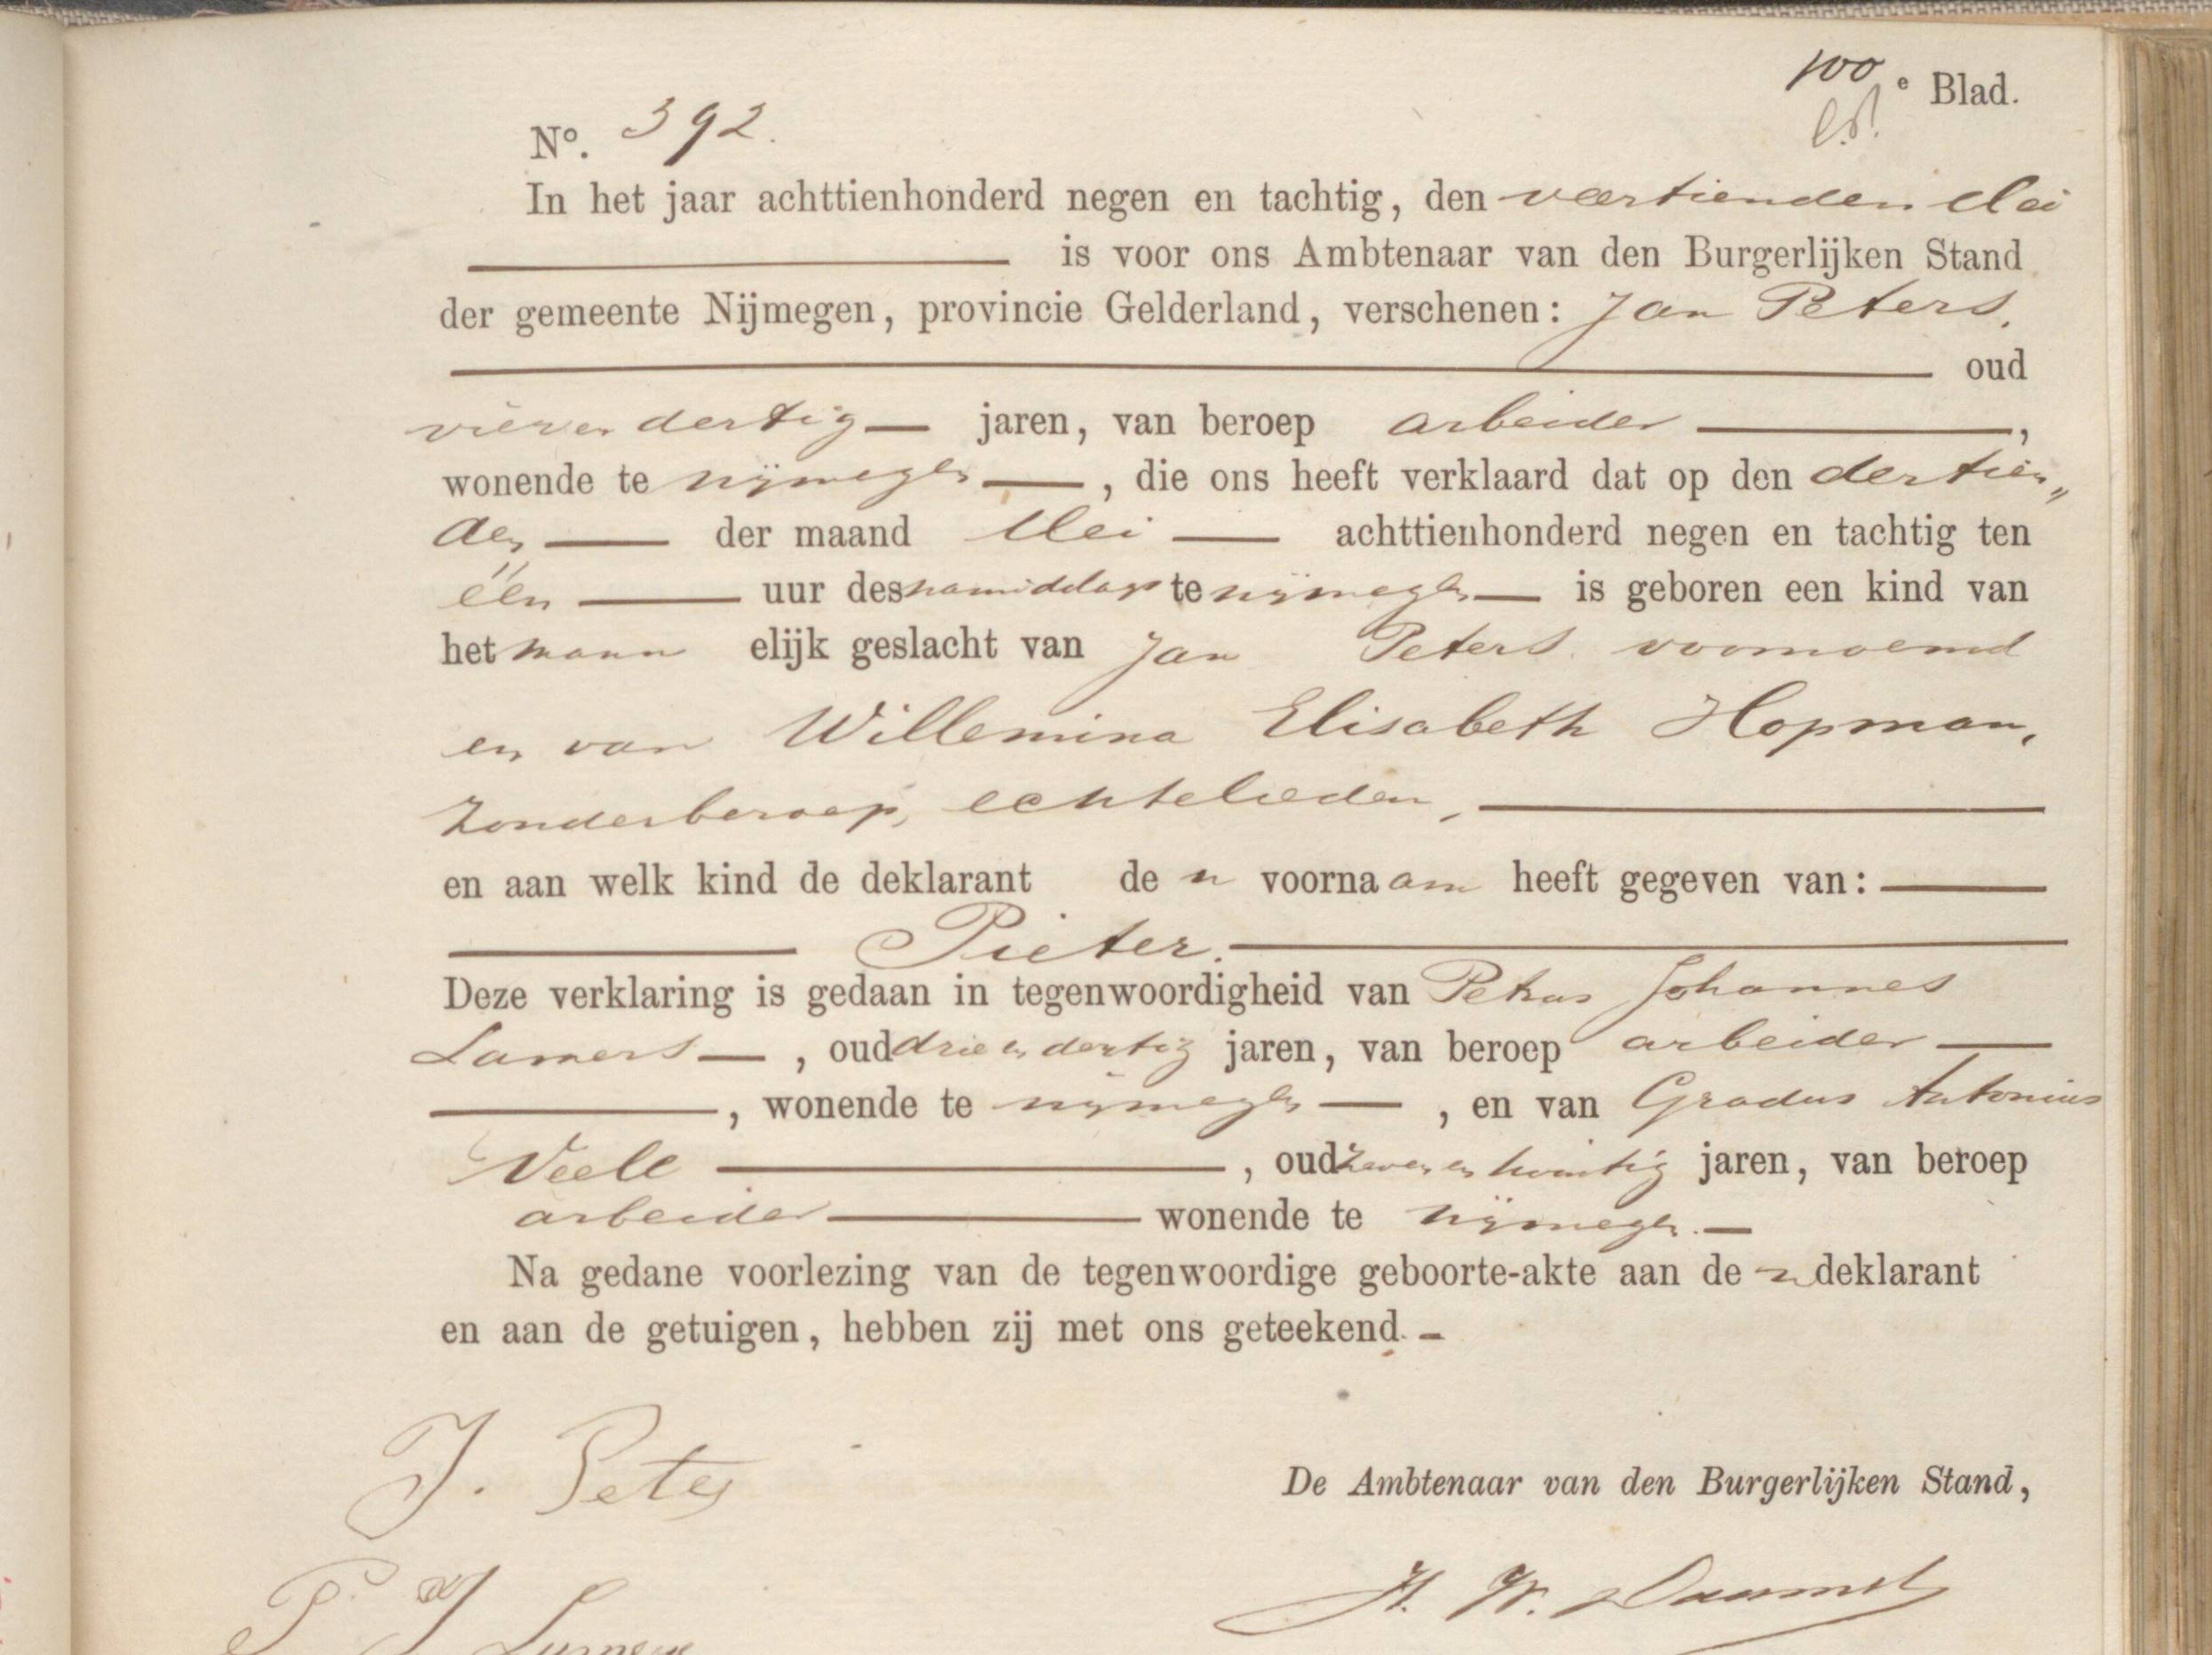 100e Blad.
No. 392.
In het jaar achttienhonderd negen en tachtig, den veertienden Mei
is voor ons Ambtenaar van den Burgerlijken Stand
der gemeente Nijmegen, provincie Gelderland, verschenen: Jan Peters,
oud
vierendertig jaren, van beroep arbeider,
wonende te Nijmegen, die ons heeft verklaard dat op den dertien„
den der maand Mei achttienhonderd negen en tachtig ten
één uur des namiddags te Nijmegen is geboren een kind van
het mann elijk geslacht van Jan Peters voornoemd
en van Willemina Elisabeth Hopman,
zonder beroep, echtelieden,
en aan welk kind de deklarant de n voornaam heeft gegeven van:
Pieter.
Deze verklaring is gedaan in tegenwoordigheid van Petrus Johannes
Lamers, oud drie en dertig jaren, van beroep arbeider
, wonende te Nijmegen, en van Gradus Antonius
Weele, oud zeven en twintig jaren, van beroep
arbeider wonende te Nijmegen.
Na gedane voorlezing van de tegenwoordige geboorte-akte aan de n deklarant
en aan de getuigen, hebben zij met ons geteekend.
J. Peters
De Ambtenaar van den Burgerlijken Stand,
P J
H. W.